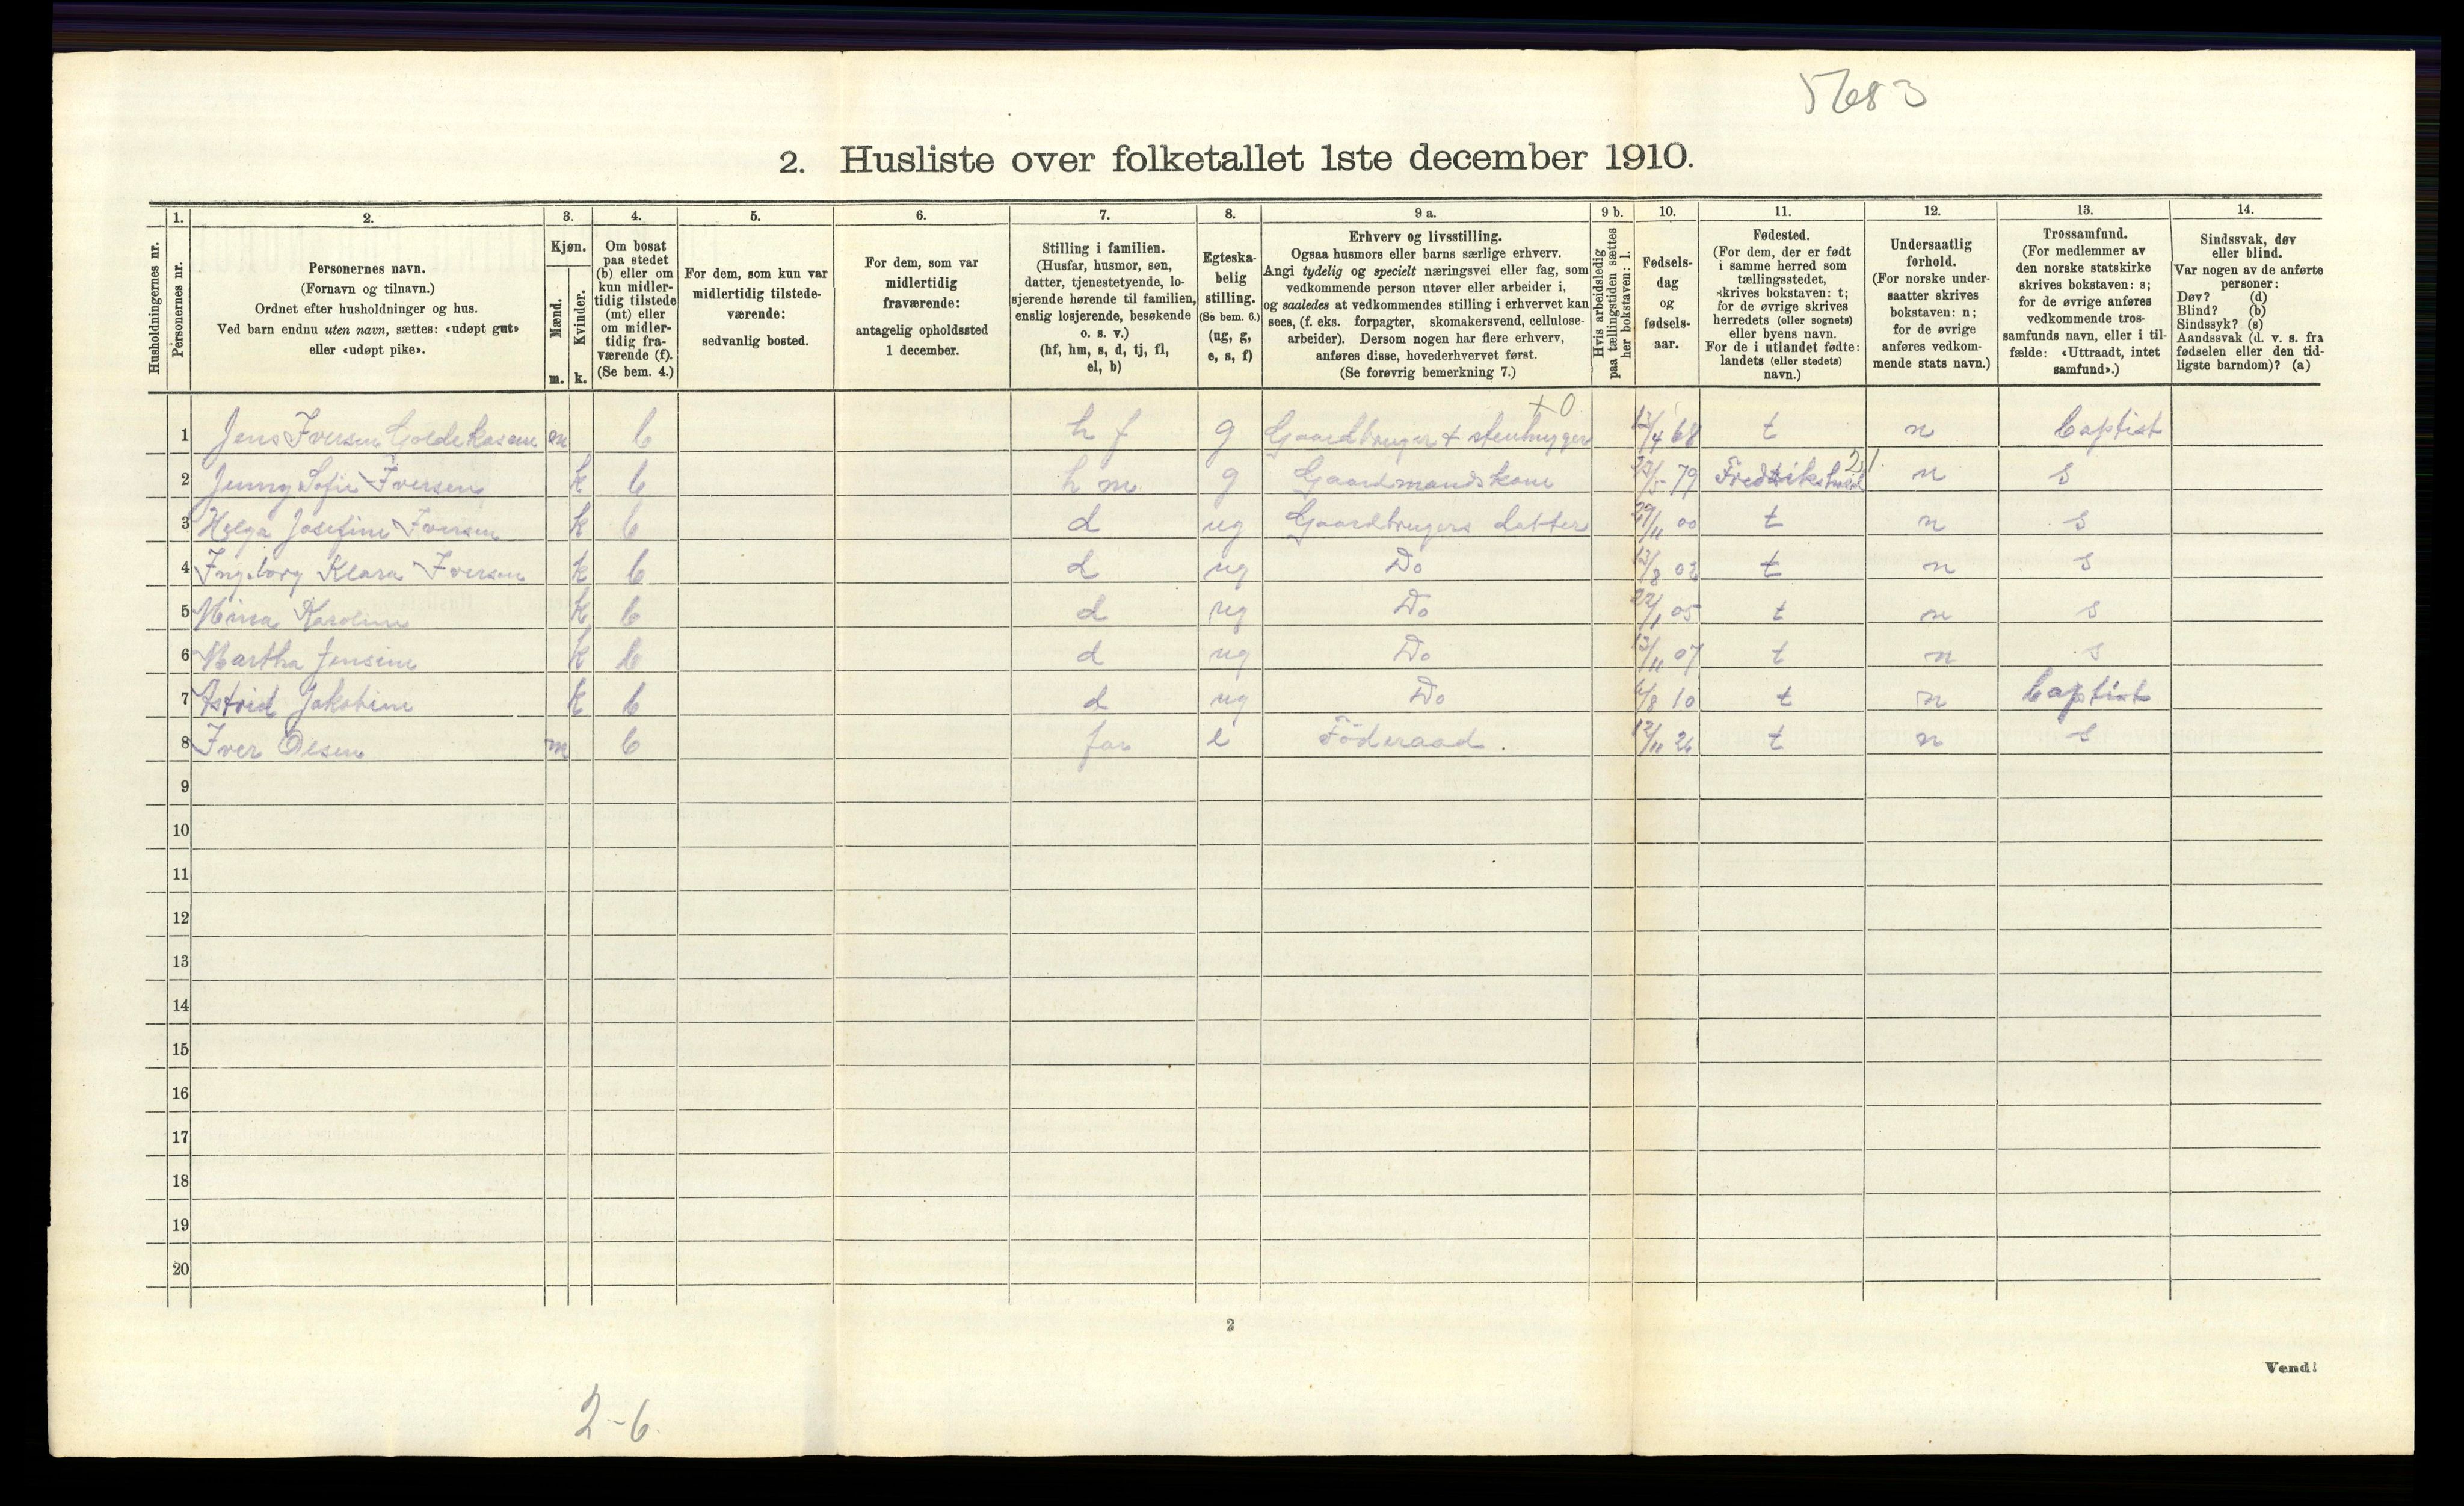 5683
2. Husliste over folketallet 1ste december 1910.
Husholdningernes nr.
1. Personernes nr.
2. Personernes navn. (Fornavn og tilnavn.) Ordnet efter husholdninger og hus. Ved barn endnu uten navn, sættes: «udøpt gut» eller «udøpt pike».
3. Kjøn. Mænd. m. Kvinder. k.
4. Om bosat paa stedet (b) eller om kun midlertidig tilstede (mt) eller om midlertidig fraværende (f). (Se bem. 4.)
5. For dem, som kun var midlertidig tilstedeværende: sedvanlig bosted.
6. For dem, som var midlertidig fraværende: antagelig opholdssted 1 december.
7. Stilling i familien. (Husfar, husmor, søn, datter, tjenestetyende, losjerende hørende til familien, enslig losjerende, besøkende o. s. v.) (hf, hm, s, d, tj, fl, el, b)
8. Egteskabelig stilling. (Se bem. 6.) (ug, g, e, s, f)
9 a. Erhverv og livsstilling. Ogsaa husmors eller barns særlige erhverv. Angi tydelig og specielt næringsvei eller fag, som vedkommende person utøver eller arbeider i, og saaledes at vedkommendes stilling i erhvervet kan sees, (f. eks. forpagter, skomakersvend, cellulosearbeider). Dersom nogen har flere erhverv, anføres disse, hovederhvervet først. (Se forøvrig bemerkning 7.)
9 b. Hvis arbeidsledig paa tællingstiden sættes her bokstaven: l.
10. Fødselsdag og fødselsaar.
11. Fødested. (For dem, der er født i samme herred som tællingsstedet, skrives bokstaven: t; for de øvrige skrives herredets (eller sognets) eller byens navn. For de i utlandet fødte: landets (eller stedets) navn.)
12. Undersaatlig forhold. (For norske undersaatter skrives bokstaven: n; for de øvrige anføres vedkommende stats navn.)
13. Trossamfund. (For medlemmer av den norske statskirke skrives bokstaven: s; for de øvrige anføres vedkommende trossamfunds navn, eller i tilfælde: «Uttraadt, intet samfund».)
14. Sindssvak, døv eller blind. Var nogen av de anførte personer: Døv? (d) Blind? (b) Sindssyk? (s) Aandssvak (d. v. s. fra fødselen eller den tidligste barndom)? (a)
+ 0
1 Jens Iversen m b h f g Gaardbruger + stenhugger 12/4 68 t n Baptist
2 Jenny Sofie Iversen k b h m g Gaardmandskone /5 79 Fredrikshald 21. n s
3 Helga Josefine Iversen k b d ug Gaardbrugers datter 29/11 00 t n s
4 Ingeborg Klara Iversen k b d ug Do 13/8 02 t n s
5 Mina Karoline k b d ug Do 22/1 05 t n s
6 Martha Jensine k b d ug Do 13/11 07 t n s
7 Astrid Jakobine k b d ug Do 6/8 10 t n Baptist
8 Iver Olsen m b far e Föderaad. 12/11 26 t n s
9
10
11
12
13
14
15
16
17
18
19
20
2
Vend!
2-6.